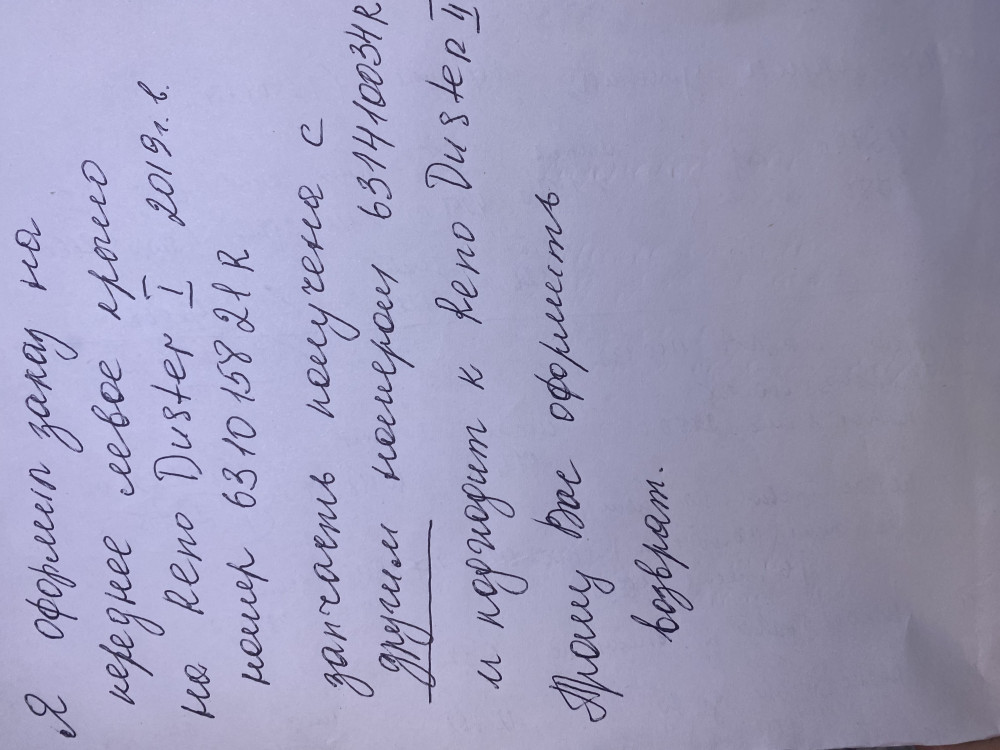 Я оформил заказ на
переднее левое крыло
на Reno Duster I 2019г.в.
номер 631015821R
запчасть получена с
другим номером 631410034R
и подходит к Reno Duster II
Прошу Вас оформить
возврат.